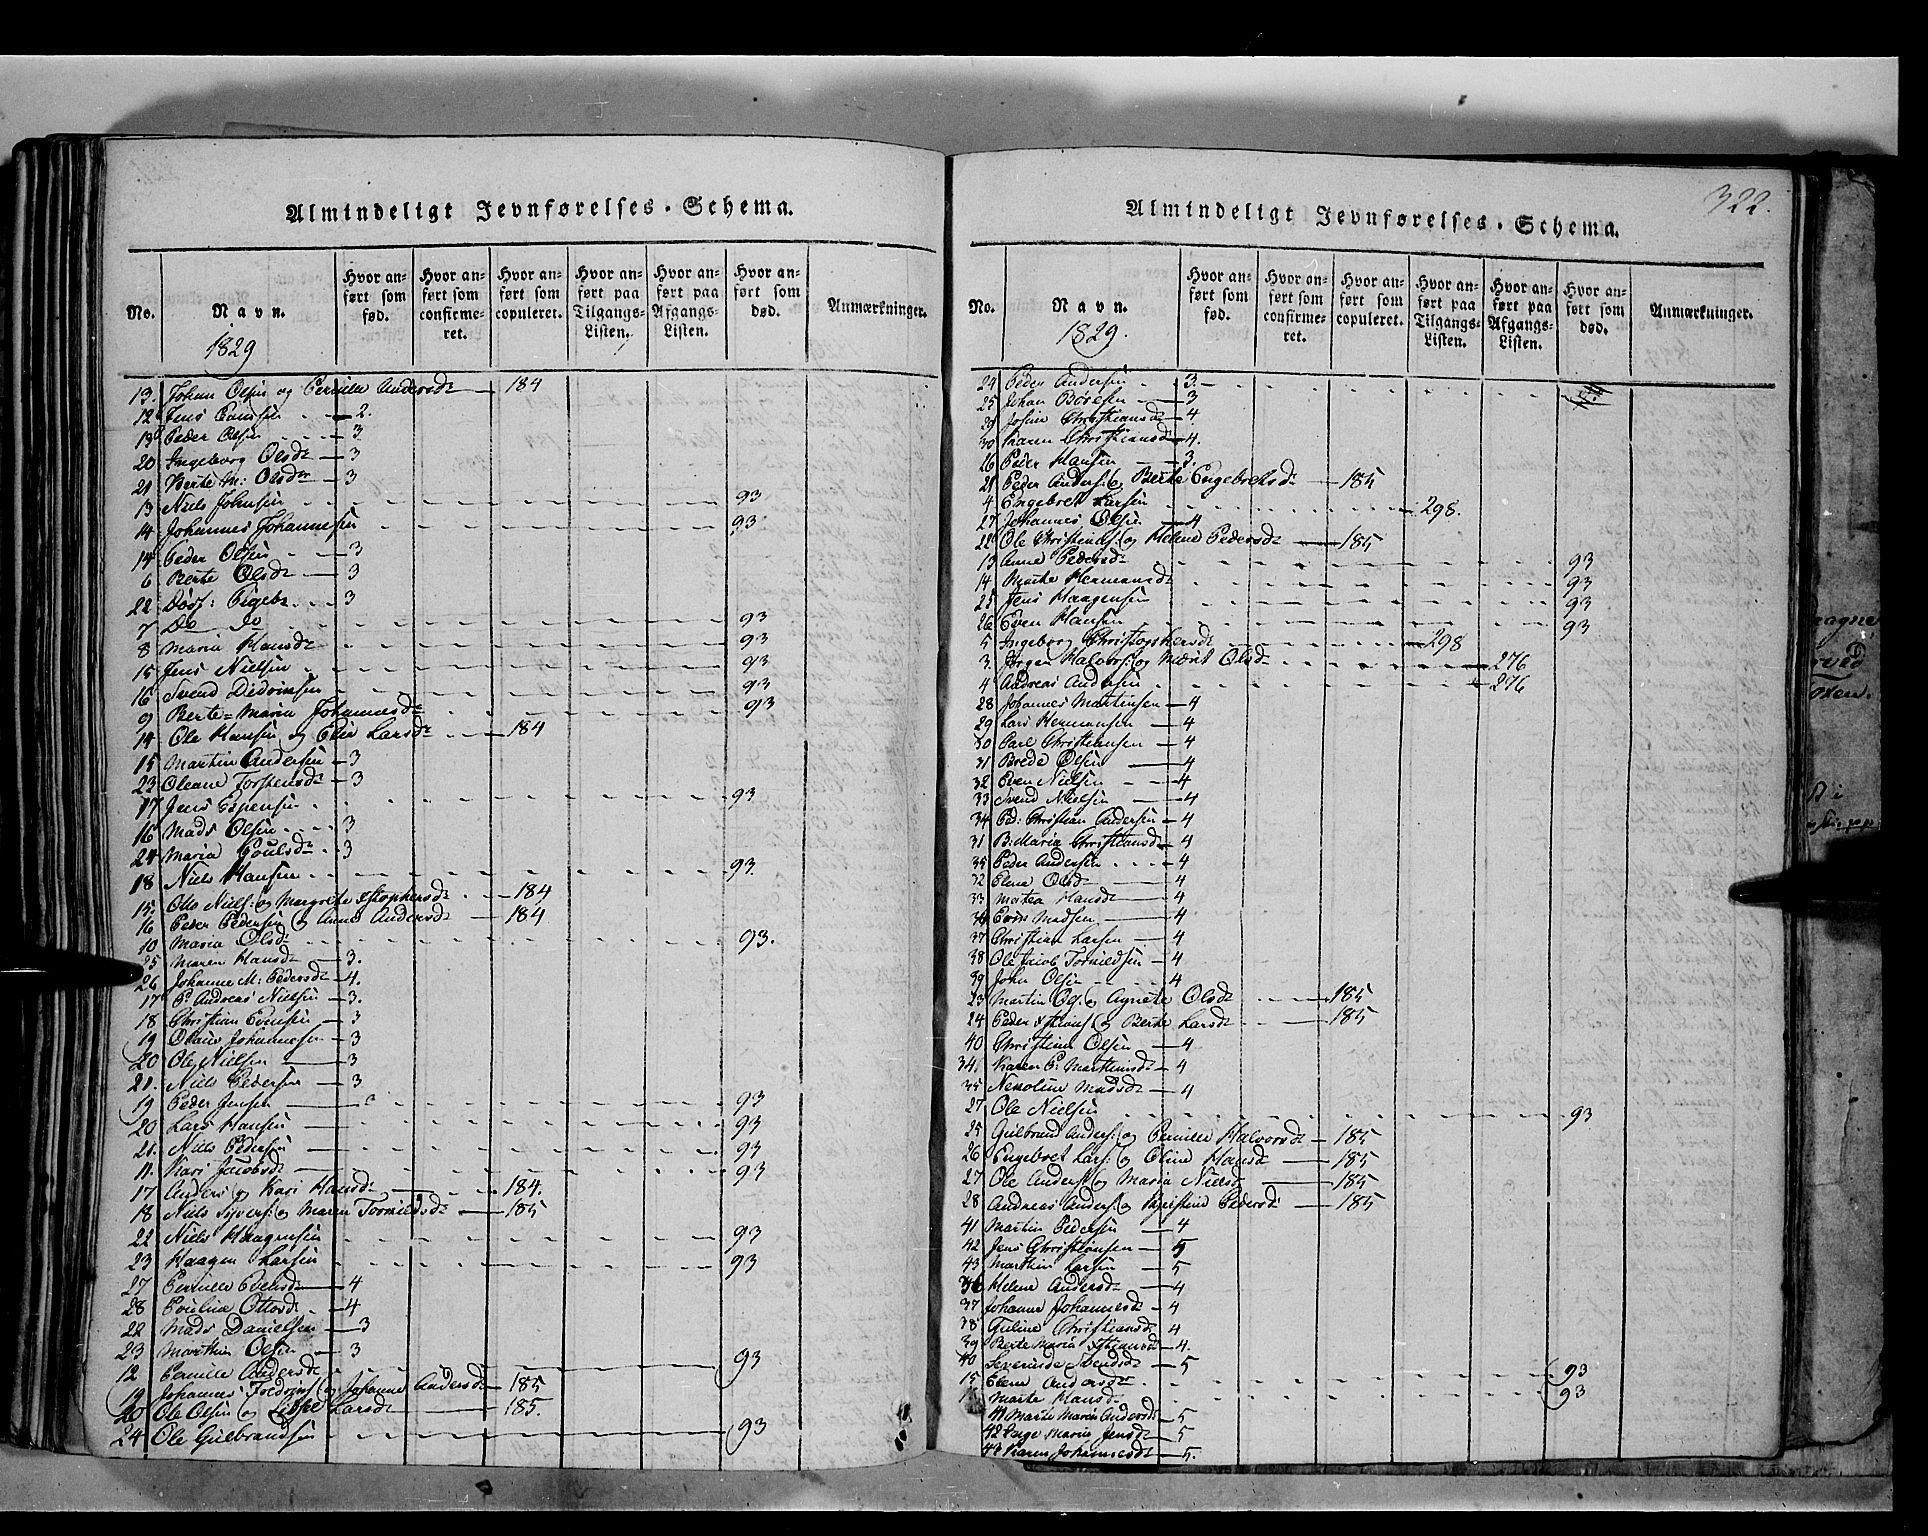 322.
Almindeligt Jevnførelses-Schema.
No. Navn. Hvor anført som fød. Hvor anført som confirmeret. Hvor anført som copuleret. Hvor anført paa Tilgangs-Listen. Hvor anført paa Afgangs-Listen. Hvor anført som død. Anmærkninger.
1829
13. Johan Olsen og Pernille Andersdr 184
12 Jens 2.
13 Peder Olsen 3
20 Ingeborg Olsdr 3
21 Berte M: Olsdr 3
13 Niels Johnsen 93
14 Johannes Johannesen 93.
14 Peder Olsen 3
6 Berte Olsdr 3
22 Dødf: Pigeb. 3
7 Do Do 93
8 Maria Hansdr 93
15 Jens Nielsen 93
16 Svend 93
9 Berte-Maria Johannesdr 93
14 Ole Hansen og Larsdr 184
15 Martin Andersen 3
23 Oleane Torstensdr 3
17 Jens Espensen 93
16 Mads Olsen 3
24 Maria Poulsdr 3
18 Niels Hansen 93.
15. Otto Niels: og Margrete 184
16 Peder Pedersen og Anne Andersdr 184
10 Maria Olsdr 93.
25 Maren Hansdr 3.
26 Johanne M: Pedersdr 4.
17 P: Andreas Nielsen 3.
18 Christian Evensen 3
19 Johannesen 3
20 Ole Nielsen 3
21. Niels Pedersen 3
19 Peder Jensen 93
20 Lars Hansen 93
21. Niels Pedersen 93
11. Kari Jacobsdr 93
17 Anders og Kari Hansdr 184.
18 Niels Syvers: og Maren 185
22 Niels Haagensen 93
23 Haagen Larsen 93
27 Pernille Evensdr 4
28 Poulina Ottosdr 4
22 Mads Danielsen 3
23 Marthin Olsen 3
12 Pernille Andersdr 93
19 Johannes og Johanne Andersdr 185
20 Ole Olsen og Larsdr 185.
24 Ole Gulbrandsen 93
Almindeligt Jevnførelses-Schema.
No. Navn. Hvor anført som fød. Hvor anført som confirmeret. Hvor anført som copuleret. Hvor anført paa Tilgangs-Listen. Hvor anført paa Afgangs-Listen. Hvor anført som død. Anmærkninger.
1829.
24 Peder Andersen 3.
25 Johan 3
29 Christiansdr 4.
30 Karen Christiansdr 4.
26 Peder Hansen 3.
21 Peder Anders: og Berte Engebretsdr 185
4 Engebret Larsen 298.
27 Johannes Olsen 4
22 Ole Christians: og Helene Pedersdr 185
13 Anne Pedersdr 93
14 Marte Hermansdr 93
25 Jens Haagensen 93
26 Even Hansen 93
5 Ingeborg Christophersdr 298
3. Jørgen Halvors: og Marit Olsdr 276
4 Andreas Andersen 276
28 Johannes Martinsen 4
29 Lars Hermansen 4
30 Carl Christiansen 4
31 Brede Olsen 4
32 Even Nielsen 4
33 Svend Nielsen 4
34 Ped: Christian Andersen 4
31 B: Maria Christiansdr 4
35 Peder Andersen 4
32 Elene Olsdr 4
33 Matea Hansdr 4
36 Madsen 4
37 Christian Larsen 4
38 Ole Jacob 4
39 John Olsen 4
23 Martin Ols. og Agnete Olsdr 185
24 Peder og Berte Larsdr 185
40 Christian Olsen 4
34. Karen P: Marthinsdr 4
35 Madsdr 4
27 Ole Nielsen 93
25 Gulbrand Anders: og Pernille Halvorsdr 185
26 Engebret Lars: og Oline Hansdr 185
27 Ole Anders: og Maria Nielsdr 185
28 Andreas Anders: og Pedersdr 185
41 Martin Pedersen 4
42 Jens Christiansen 5
43 Marthin Larsen 5
36 Helene Andersdr 4
37 Johanne Johannesdr 4
38 Guline Christiansdr 4
39 Berte Maria 4.
40 Severinde 5
15 Elene Andersdr 93
Marte Hansdr 93
41 Marte Maria Andersdr 5
42 Inge Maria Jensdr 5
44 Karen Johannesdr 5.